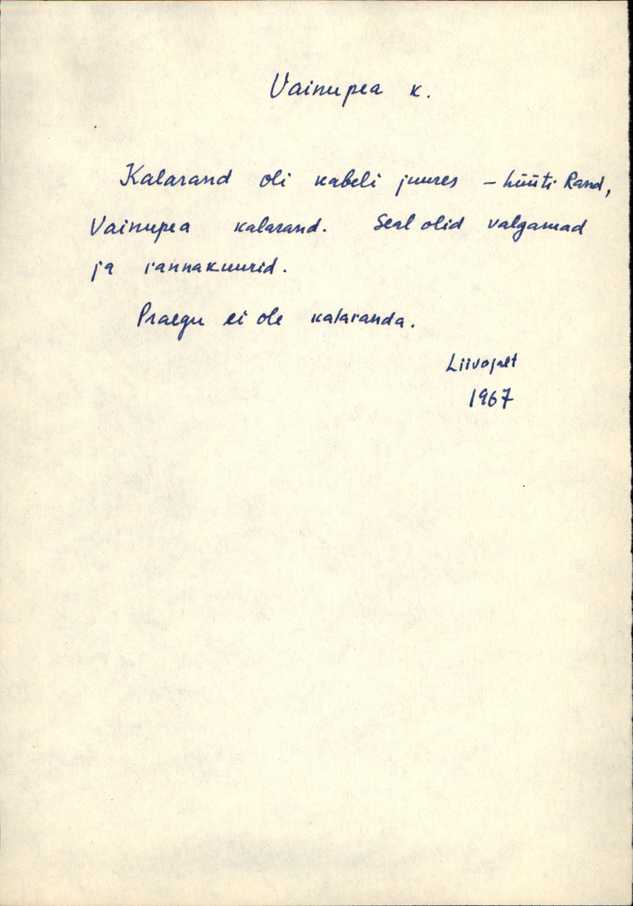 Vainupea k.
Kalarand oli kabeli juures – hüüti Rand,
Vainupea kalarand. Seal olid valgamad
ja rannakuurid.
Praegu ei ole kalaranda.
1967